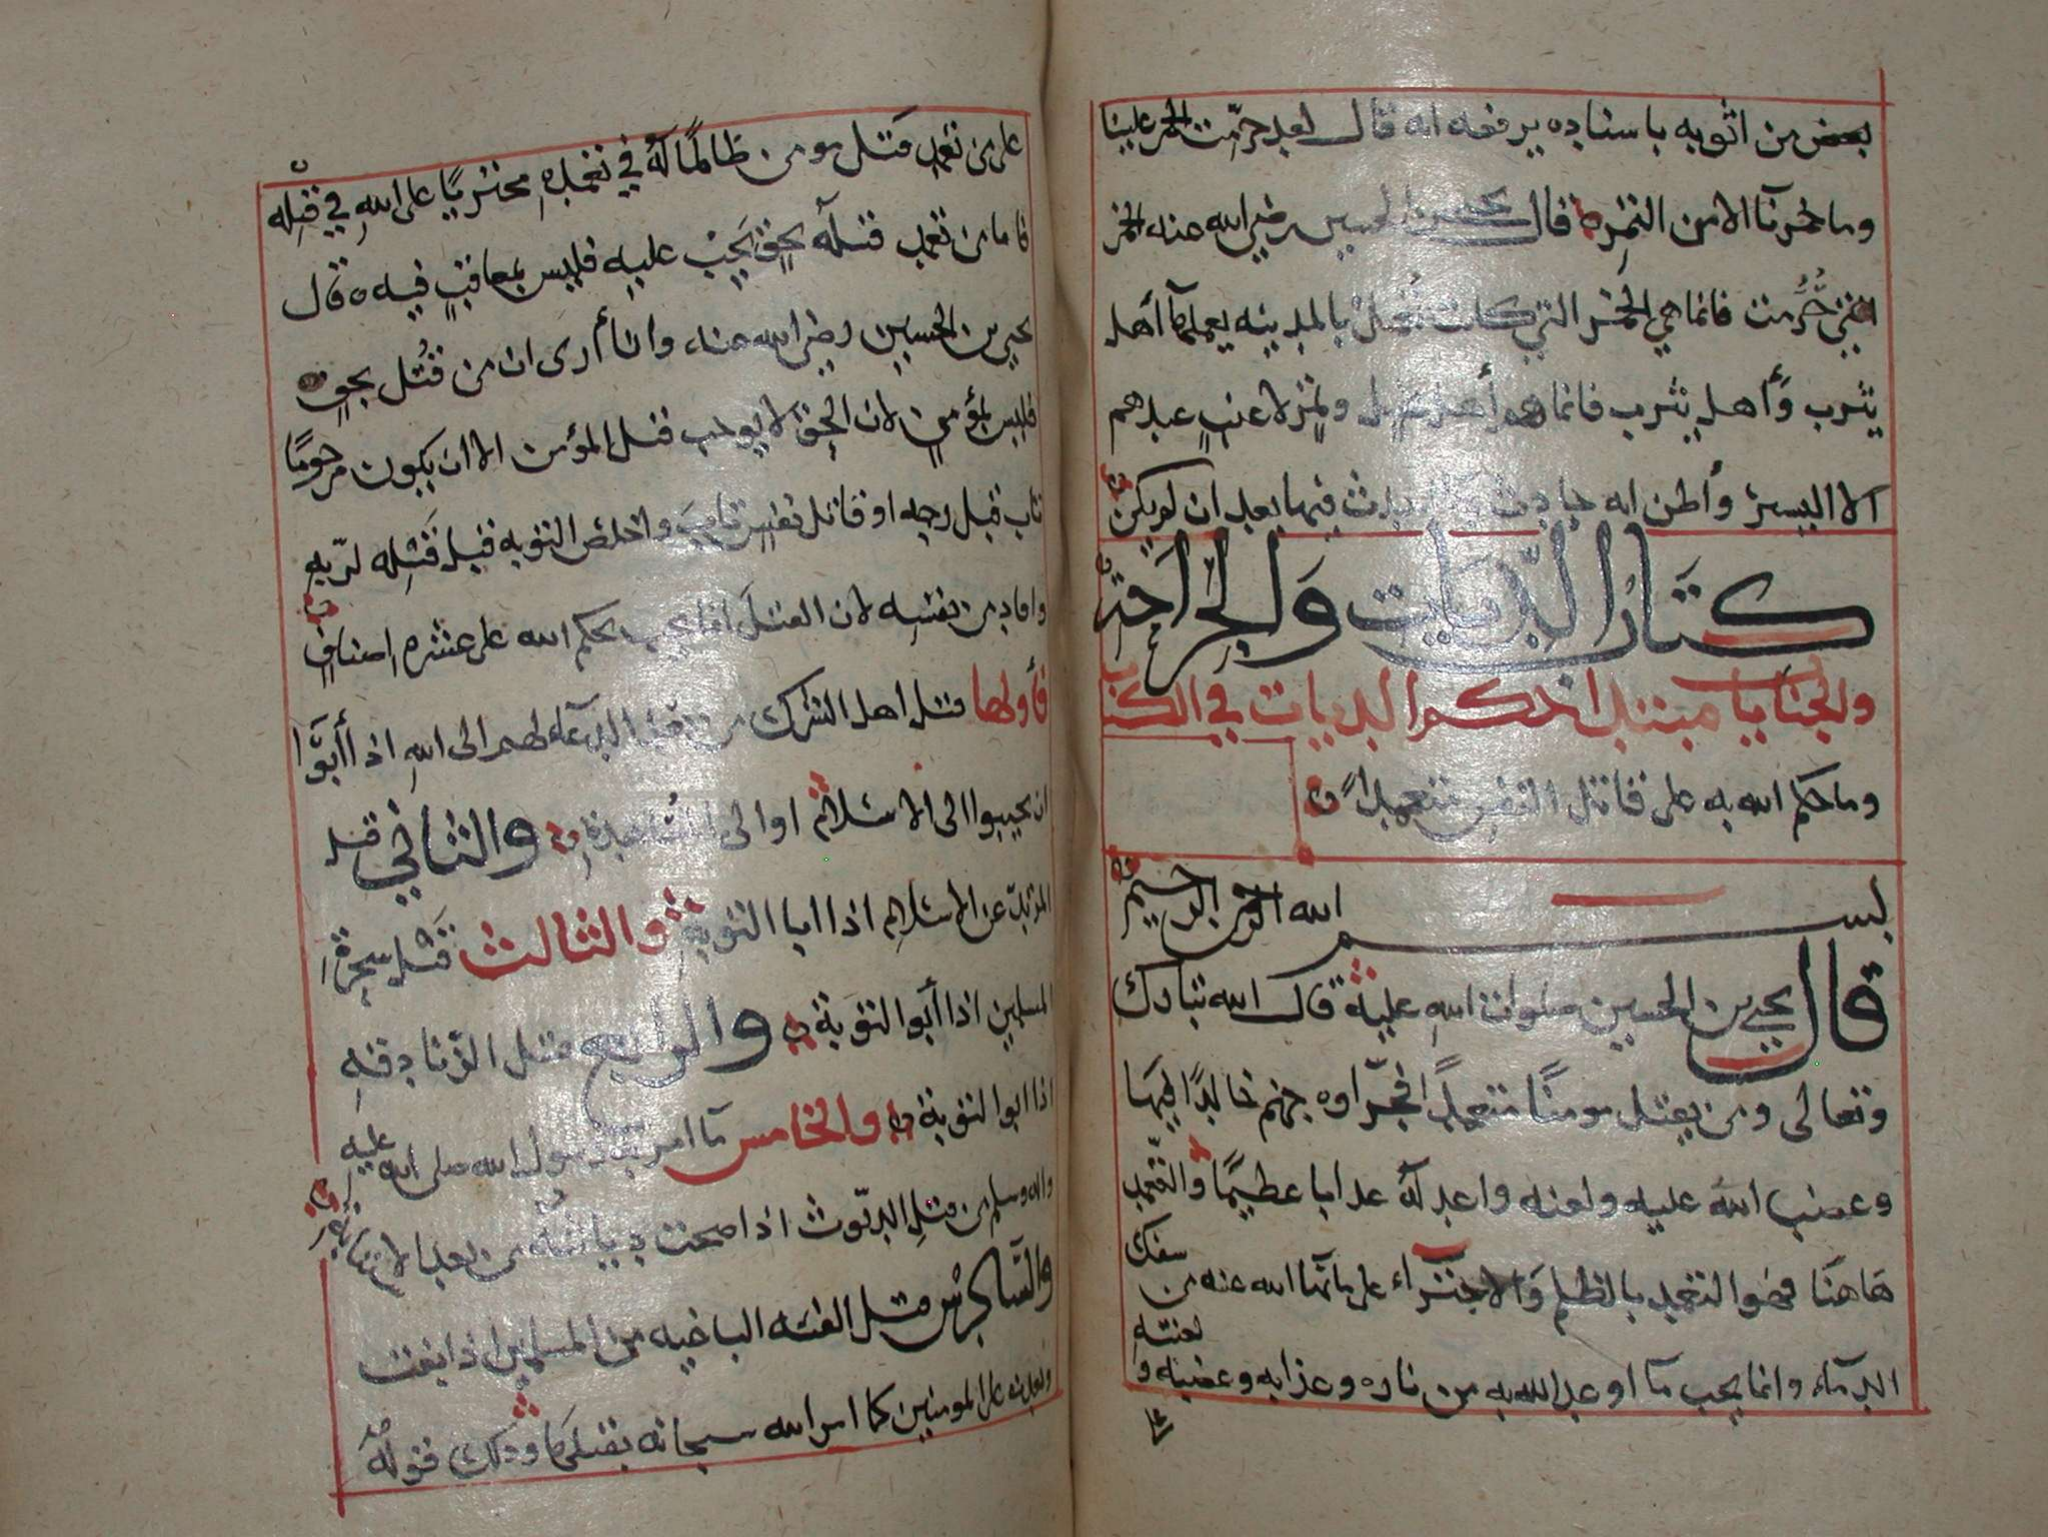 بعض من اثق به باسناده يرفعه انه قال لقد حرّمت الخمر علينا
وما خمرنا الا من التمره قال يحيى بن الحسين رضي الله عنه الخمر
التي حُرّمت فانما هي الخمر التي كانت تُعمل بالمدينه يعملها أهل
يثرب وأهل يثرب فانما هم أهل نخيل وتمرٍ لا عنبٍ عندهم
الا اليسير وأظن انه حادث فيها بعد ان لم يكن
كتاب الديات والجراحة
والجنايا مبتدا حكم الديات في الكتاب
وما حكم الله به على قاتل النفس متعمداً
بسم الله الرحمن الرحيم
قال يحيى بن الحسين صلوات الله عليه قال الله تبارك
وتعالى ومن يقتل مومنًا متعمدًا فجزاوه جهنم خالدًا فيها
وغضب الله عليه ولعنه واعد له عذابا عظيمًا والتعمّد
هاهنا فهو التعمد بالظلم والاجتراء على ما نها الله عنه من سفك
الدمآء وانما يجب ما اوعد الله به من ناره وعذابه وغضبه و لعنته
على من تعمد قتل مومن ظالمًا له في تعمده مجتريًا على الله في قتله
فاما من تعمد قتله بحقٍ يجب عليه فليس بمعاقبٍ فيه قال
يحيى بن الحسين رضي الله عنه وانا أرى ان من قُتل بحقٍ
فليس بمؤمنٍ لان الحق لا يوجب قتل المؤمن الا ان يكون مرجومًا
تاب قبل رجمه او قاتل نفسٍ تاب واخلص التوبه قبل قتله لربه
واقاد من نفسه لان القتل انما يجب بحكم الله على عشره اصنافٍ
فأولها قتل اهل الشرك من بعد الدعآء لهم الى الله اذا أبوا
ان يجيبوا الى الاسلام او الى المعاهدة والثاني قتل
المرتد عن الاسلام اذا ابا التوبة والثالث قتل سحرة
المسلمين اذا أبوا التوبة والرابع قتل الزنادقه
اذا ابوا التوبة والخامس ما امر به رسول الله صلى الله عليه
واله وسلم من قتل الديّوث اذا صحت دياثته من بعد الاستتابة
والسادس قتل الفئه الباغيه من المسلمين اذا بغت
وتعدت على المومنين كما امر الله سبحانه بقتلها وذلك قوله